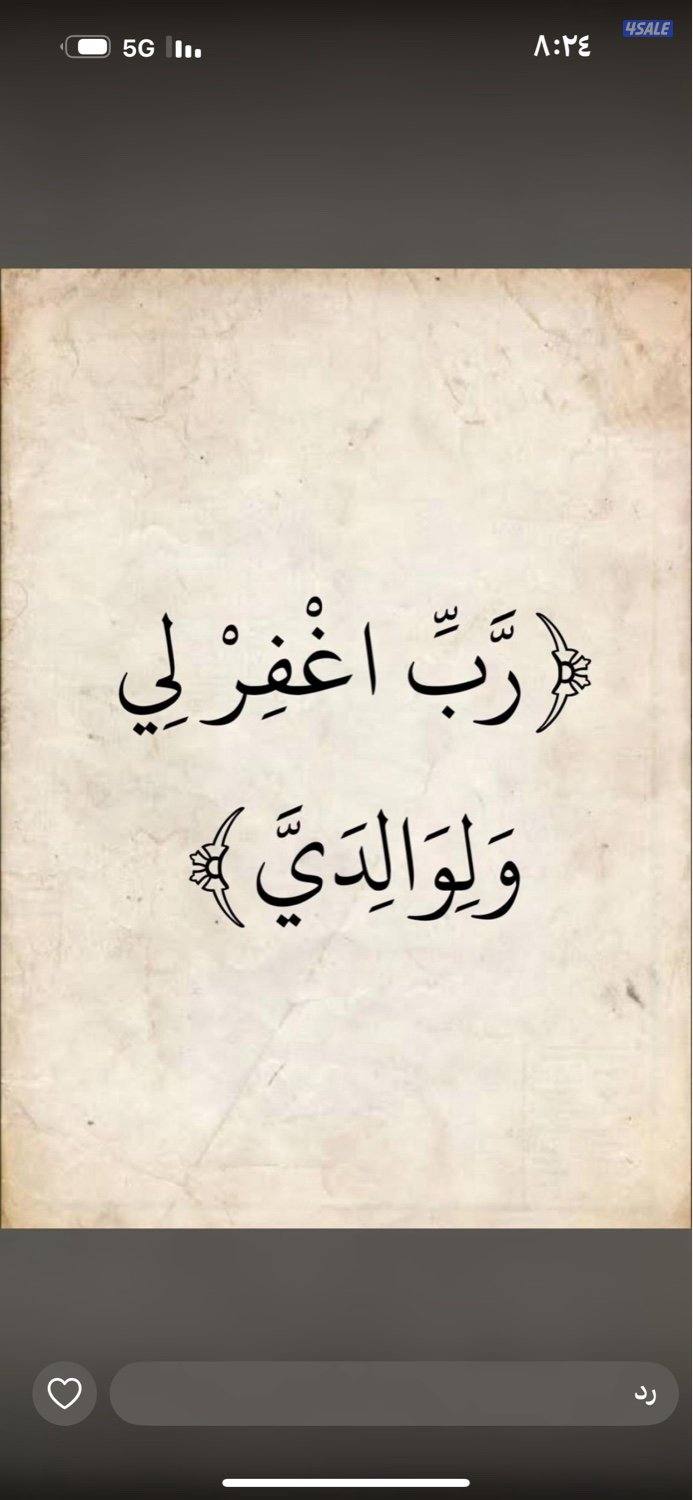 5G
٨:٣٤
4SALE
﴿ رَّبِّ اغْفِرْ لِي
وَلِوَالِدَيَّ ﴾
رد